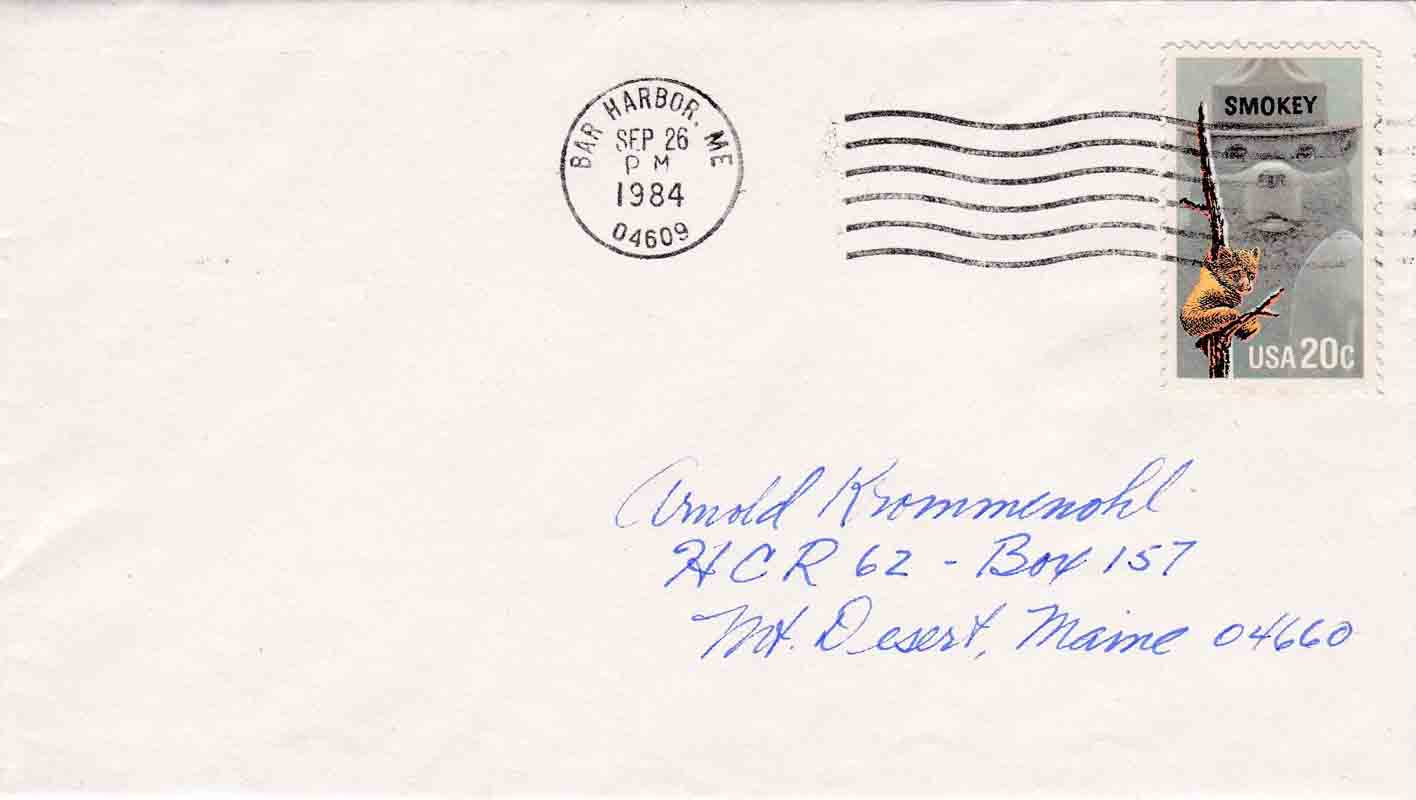 BAR HARBOR, ME
SEP 26
PM
1984
04609
SMOKEY
USA 20c
Arnold Krommenohl
HCR 62 - Box 157
Mt. Desert, Maine 04660